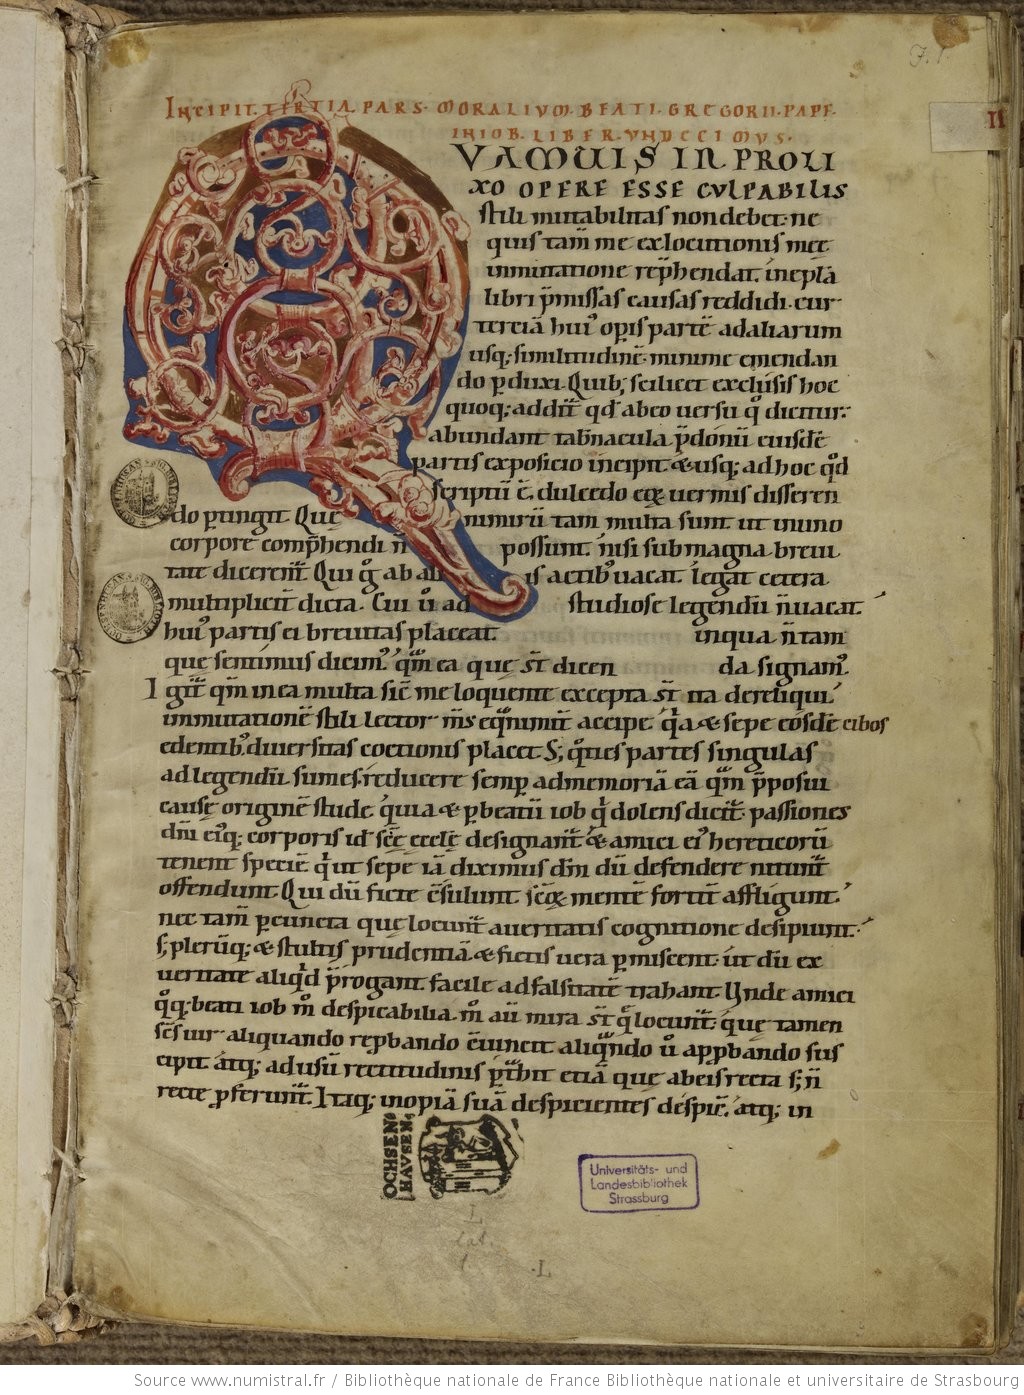 INCIPIT TERTIA PARS MORALIVM BEATI GREGORII PAPE
IN IOB. LIBER VNDECIMVS.
QVAMVIS IN PROLI
XO OPERE ESSE CVLPABILIS
stili mutabilitas non debet. ne
quis tam̄ me ex locutionis meę
inmutatione rep̄hendat. in ep̄la
libri p̄missas causas reddidi. cur
terciā hui' op̄is partē ad aliarum
usq; similitudinē minime emendan
do p̄duxi. Quib; scilicet exclusis hoc
quoq; addit̄ qđ ab eo uersu q̊ dicitur.
abundant tab̄nacula p̄donū eiusdē
partis exposicio incipit & usq; ad hoc qđ
scriptū ē. dulcedo ei' uermis disseren
do p̄tingit. Quę nimirū tam multa sunt ut in uno
corpore comp̄hendi n̄ possunt. nisi sub magna breui
tate dicerent̄. Qui g̊ ab aliis actib; uacat. legat cetera
multiplicit̄ dicta. Cui ů ad studiose legendū n̄ uacat.
hui' partis ei breuitas placeat. in qua n̄ tam
quę sentimus dicim'. q̄m ea quę st̄ dicen da signam'.
Igit̄ q̄m in ea multa sic̄ me loquente excepta st̄ ita dereliqui
inmutationē stili lector m̄s eq̄nimit̄ accipe. q̇a & sepe eosdē cibos
edentib; diuersitas coctionis placet. S; q̊ties partes singulas
ad legendū sumes. reducere semp̄ ad memoriā eā q̄m p̄posui
causę originē stude. quia & p̄ beatū iob q̇ dolens dicit̄. passiones
dn̄i ei'q; corporis id' sc̄ę eccl̄ę designant̄. & amici ei' hereticorū
tenent speciē. q̇ ut sepe iā diximus dm̄ dū defendere nitunt̄
offendunt. Qui dū ficte c̄sulunt. sc̄ōꝝ mentē fortit̄ affligunt.
nec tam̄ p̄ cuncta quę locunt̄ a ueritatis cognitione desipiunt.
s; plerūq; & stultis prudentiā. & fictis uera p̄miscent. ut dū ex
ueritate aliq̇d p̄rogant. facile ad falsitatē trahant. Unde amici
q̊q; beati iob m̊ despicabilia. m̊ aū mira st̄ q̄ locunt̄. quę tamen
sc̄s uir aliquando rep̄bando c̄uincit. aliq̄ndo ů app̄bando sus
cipit. atq; ad usū rectitudinis p̄t̄hit etiā quę ab eis recta s; n̄
recte p̄ferunt̄. Itaq; inopiā suā despicientes despic̄. atq; in
OCHSEN
HAVSEN
Universitäts- und
Landesbibliothek
Strassburg
L
lat.
1
.L
Source www.numistral.fr / Bibliothèque nationale de France Bibliothèque nationale et universitaire de Strasbourg